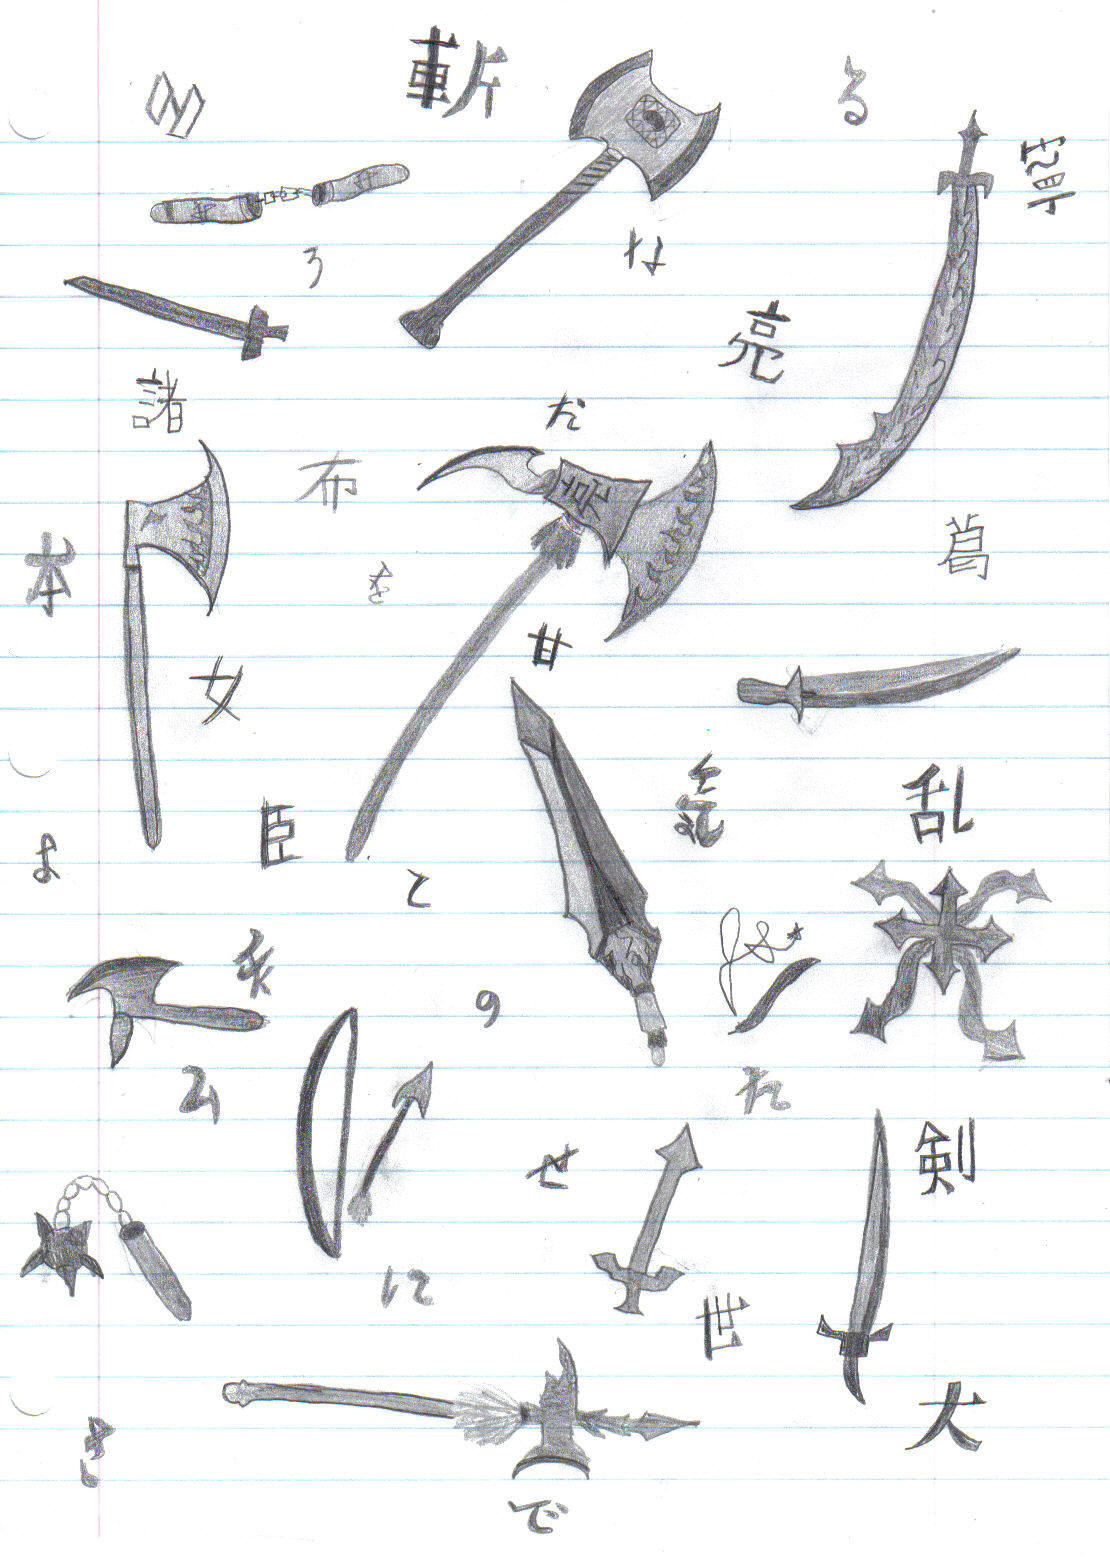 斬
る
な
ろ
亮
諸
だ
布
葛
本
を
甘
女
乱
臣
よ
と
の
れ
剣
せ
に
世
大
き
で